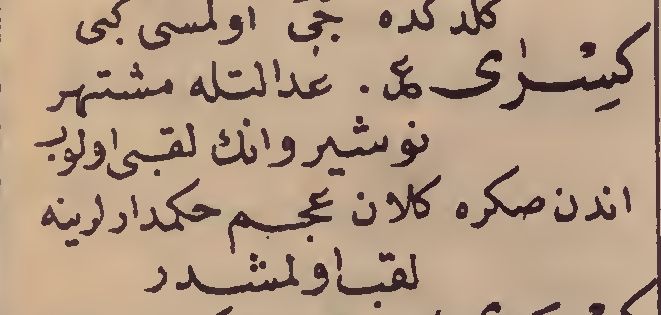 كلدكده جىّ اولمسى كبى
كِسْرٰى ع. عدالتله مشتهر
نوشيروانك لقبى اولوب
اندن صكره كلان عجم حكمدارلرينه
لقب اولمشدر